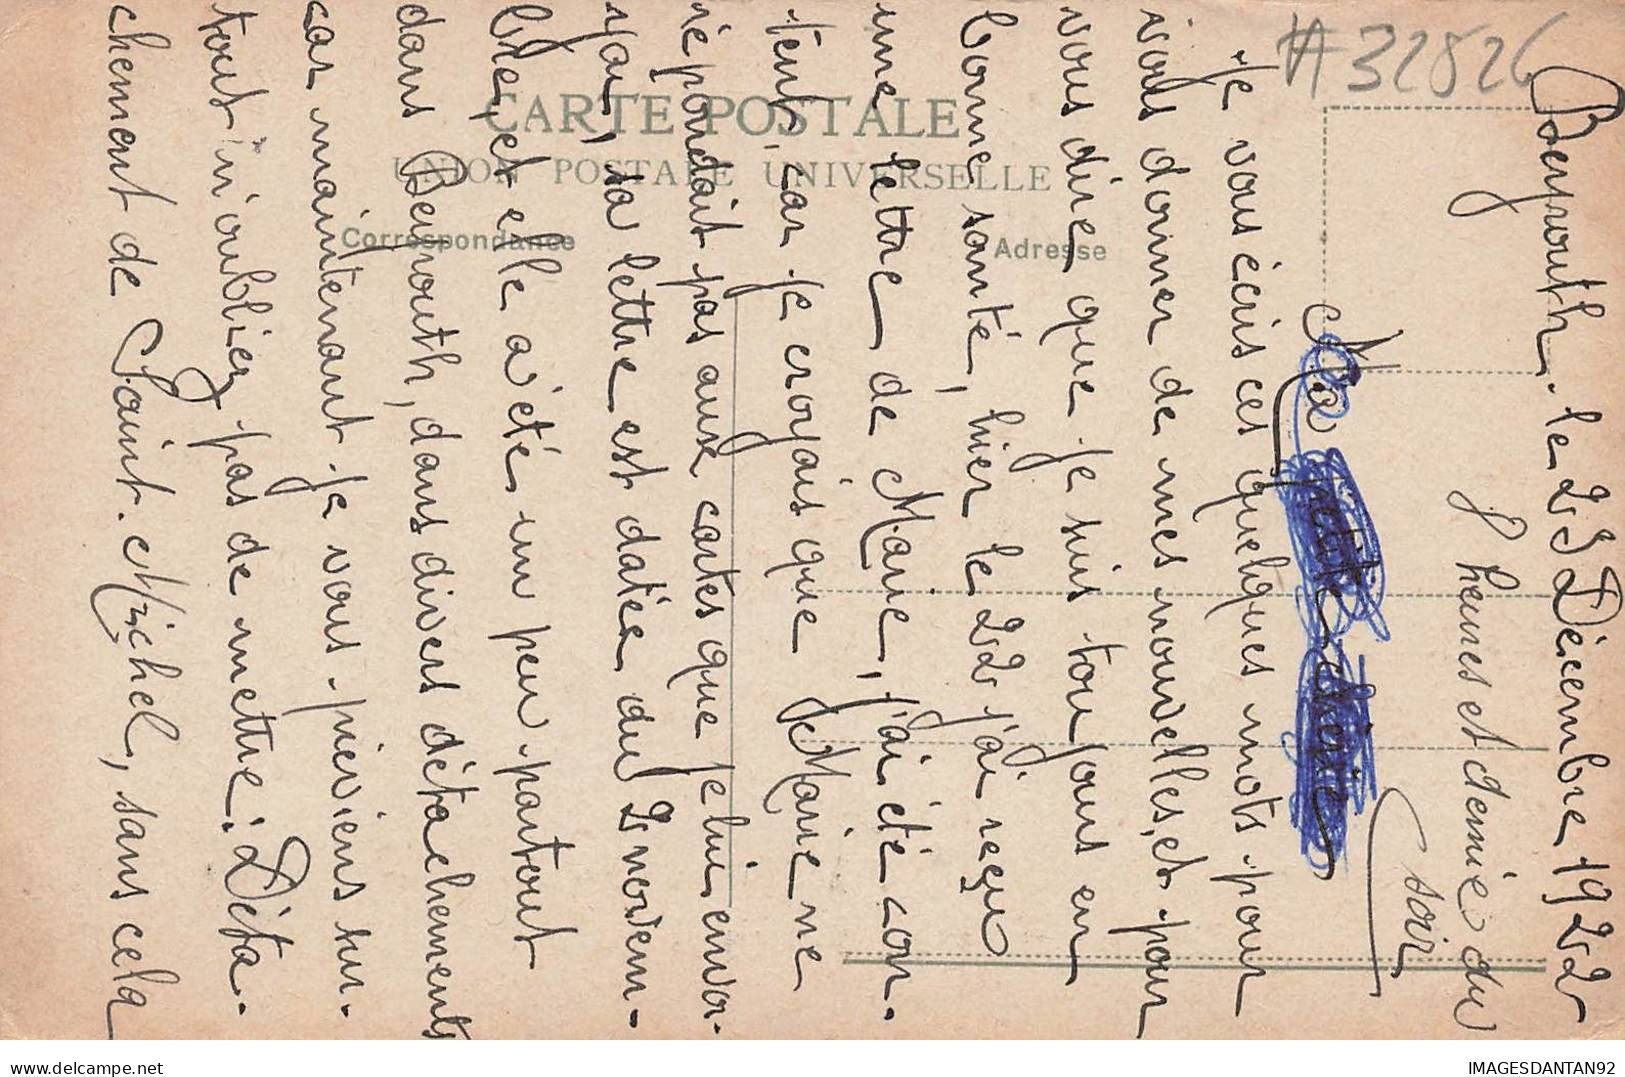 #32826
CARTE POSTALE
UNION POSTALE UNIVERSELLE
Correspondance
Adresse
Beyrouth. le 23 Décembre 1922
8 heures et demie du
soir
Ma petite chérie
Je vous écris ces quelques mots pour
vous donner de mes nouvelles, et pour
vous dire que je suis toujours en
bonne santé, hier le 22 j'ai reçu
une lettre de Marie, j'ai été con-
tent car je croyais que Marie ne
répondait pas aux cartes que je lui envo-
yai, sa lettre est datée du 2 novem-
bre, et elle a été un peu partout
dans Beyrouth, dans divers détachements
car maintenant je vous previens sur-
tout n'oubliez pas de mettre: Déta-
chement de Saint-Michel, sans cela
IMAGESDANTAN92